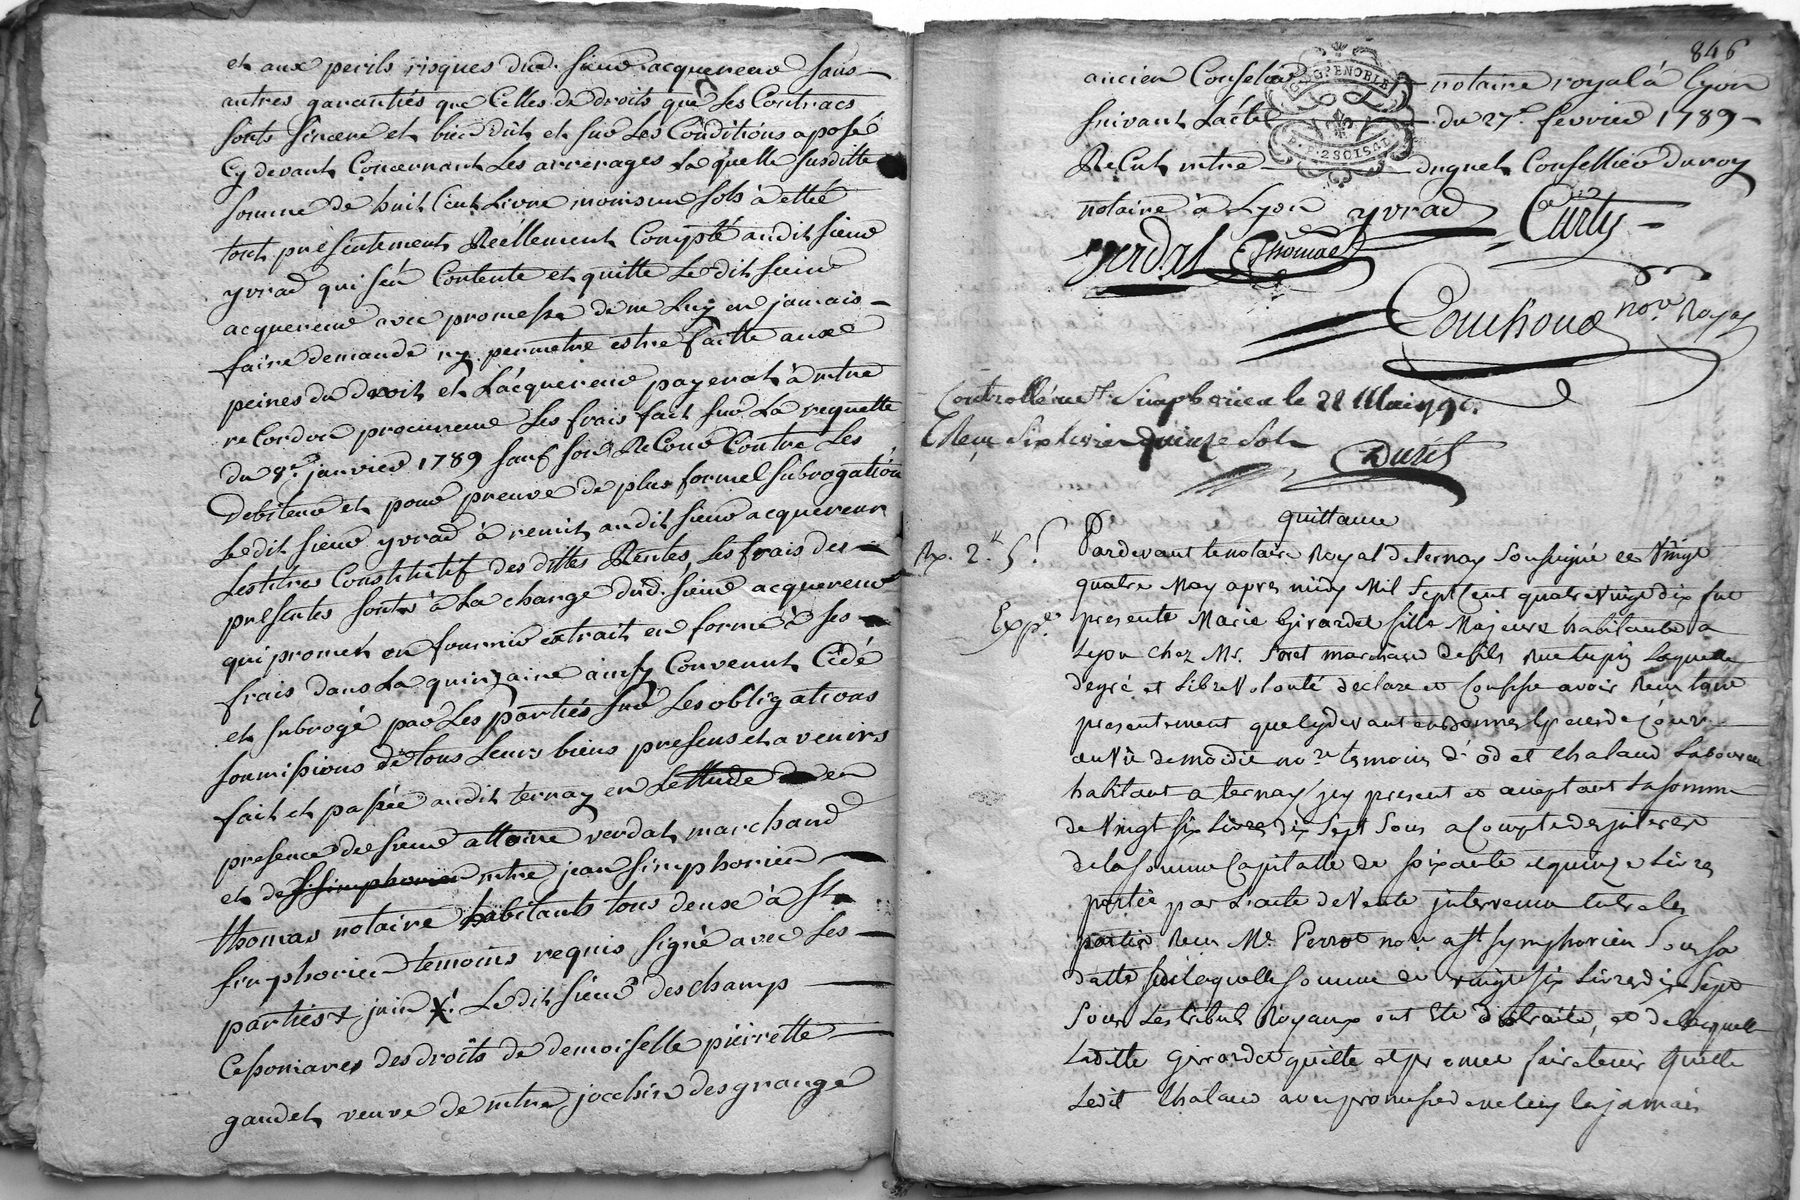 et aux perils risques dud. sieur acquereur sans
autres garanties que Celles de droits que Les Contracs
sonts sincere et bien dût et sur Les Conditions aposé
Cy devant Concernant Les arrerages La quelle susditte
somme de huit Cent Livre moins un sols à êtté
tout présentement Réellement Compté audit sieur
yvrad qui s'én Contente et quitte Ledit sieur
acquereur avec promesse de ne Luy en jamais
faire demande ny permetre estre faitte aux
peines du droit et L'acquereur payerat à mtre
recordon procureur Les frais fait sur La requette
du 8e. janvier 1789 sauf son ReCour Contre Les
Debiteur et pour preuve de plus formel subrogation
Ledit sieur yvrad à remit audit sieur acquereur
Les titres Constitutif des dittes Rentes, Les frais des
présentes sonts à La charge dud. sieur acquereur
qui promet en fournir extrait en forme à ses
frais dans La quinzaine ainsy Convenut Cédé
et subrogé par Les parties sur Les obligations
soumissions de tous Leurs biens presens et avenirs
fait et passée audit ternay en Lettude
presence de sieur attoine verdat marchand
et de simphorien mtre jean simphorien
thomas notaire habitants tous deux à st
simphorien temoins requis signé avec Les
parties juin X. Ledit sieur deschamp
Cessoniares des droits de demoiselle pierrette
gaudet veuve de mtre jocchin desgrange
846
ancien Conseler notaire royal à Lyon
suivant L'acte du 27e. fevrier 1789
ReCut mtre duguet Consellier du roy
notaire à Lyon yvrad Curty
verdat Thomas
GRENOBLE
2 SOLS
Couchoud nore. Royal
Controllé a St. Simphorien le 28 Mai 1790.
Reçu Six livres quinze Sols
quittance
Rx. 2 5s
Pardevant le notaire Royal de ternay soussigné ce vingt
quatre May apres midy Mil sept cent quatre vingt dix fut
Expé.
presente Marie Girardet fille Majeure habitante a
Lyon chez Mr. foret marchand de fils rue tupin Laquelle
de gré et Libre volonté declare et confesse avoir Reçu tant
presentement que cy devant
habitant a ternay icy present et aceptant La somme
de vingt six Livres dix sept sous acompte des interest
de la somme capitalle de soixante et quinze Livres
portée par L'acte de vente intervenue entre les
parties Reçu Me. Perrot nore a st symphorien sous sa
datte sur laquelle somme de vingt six Livres dix sept
sous Les tributs Royaux ont été distraits, et de laquelle
Laditte girardet quitte et promet faire tenir quitte
Ledit chaland avec promesse de ne luy en jamais